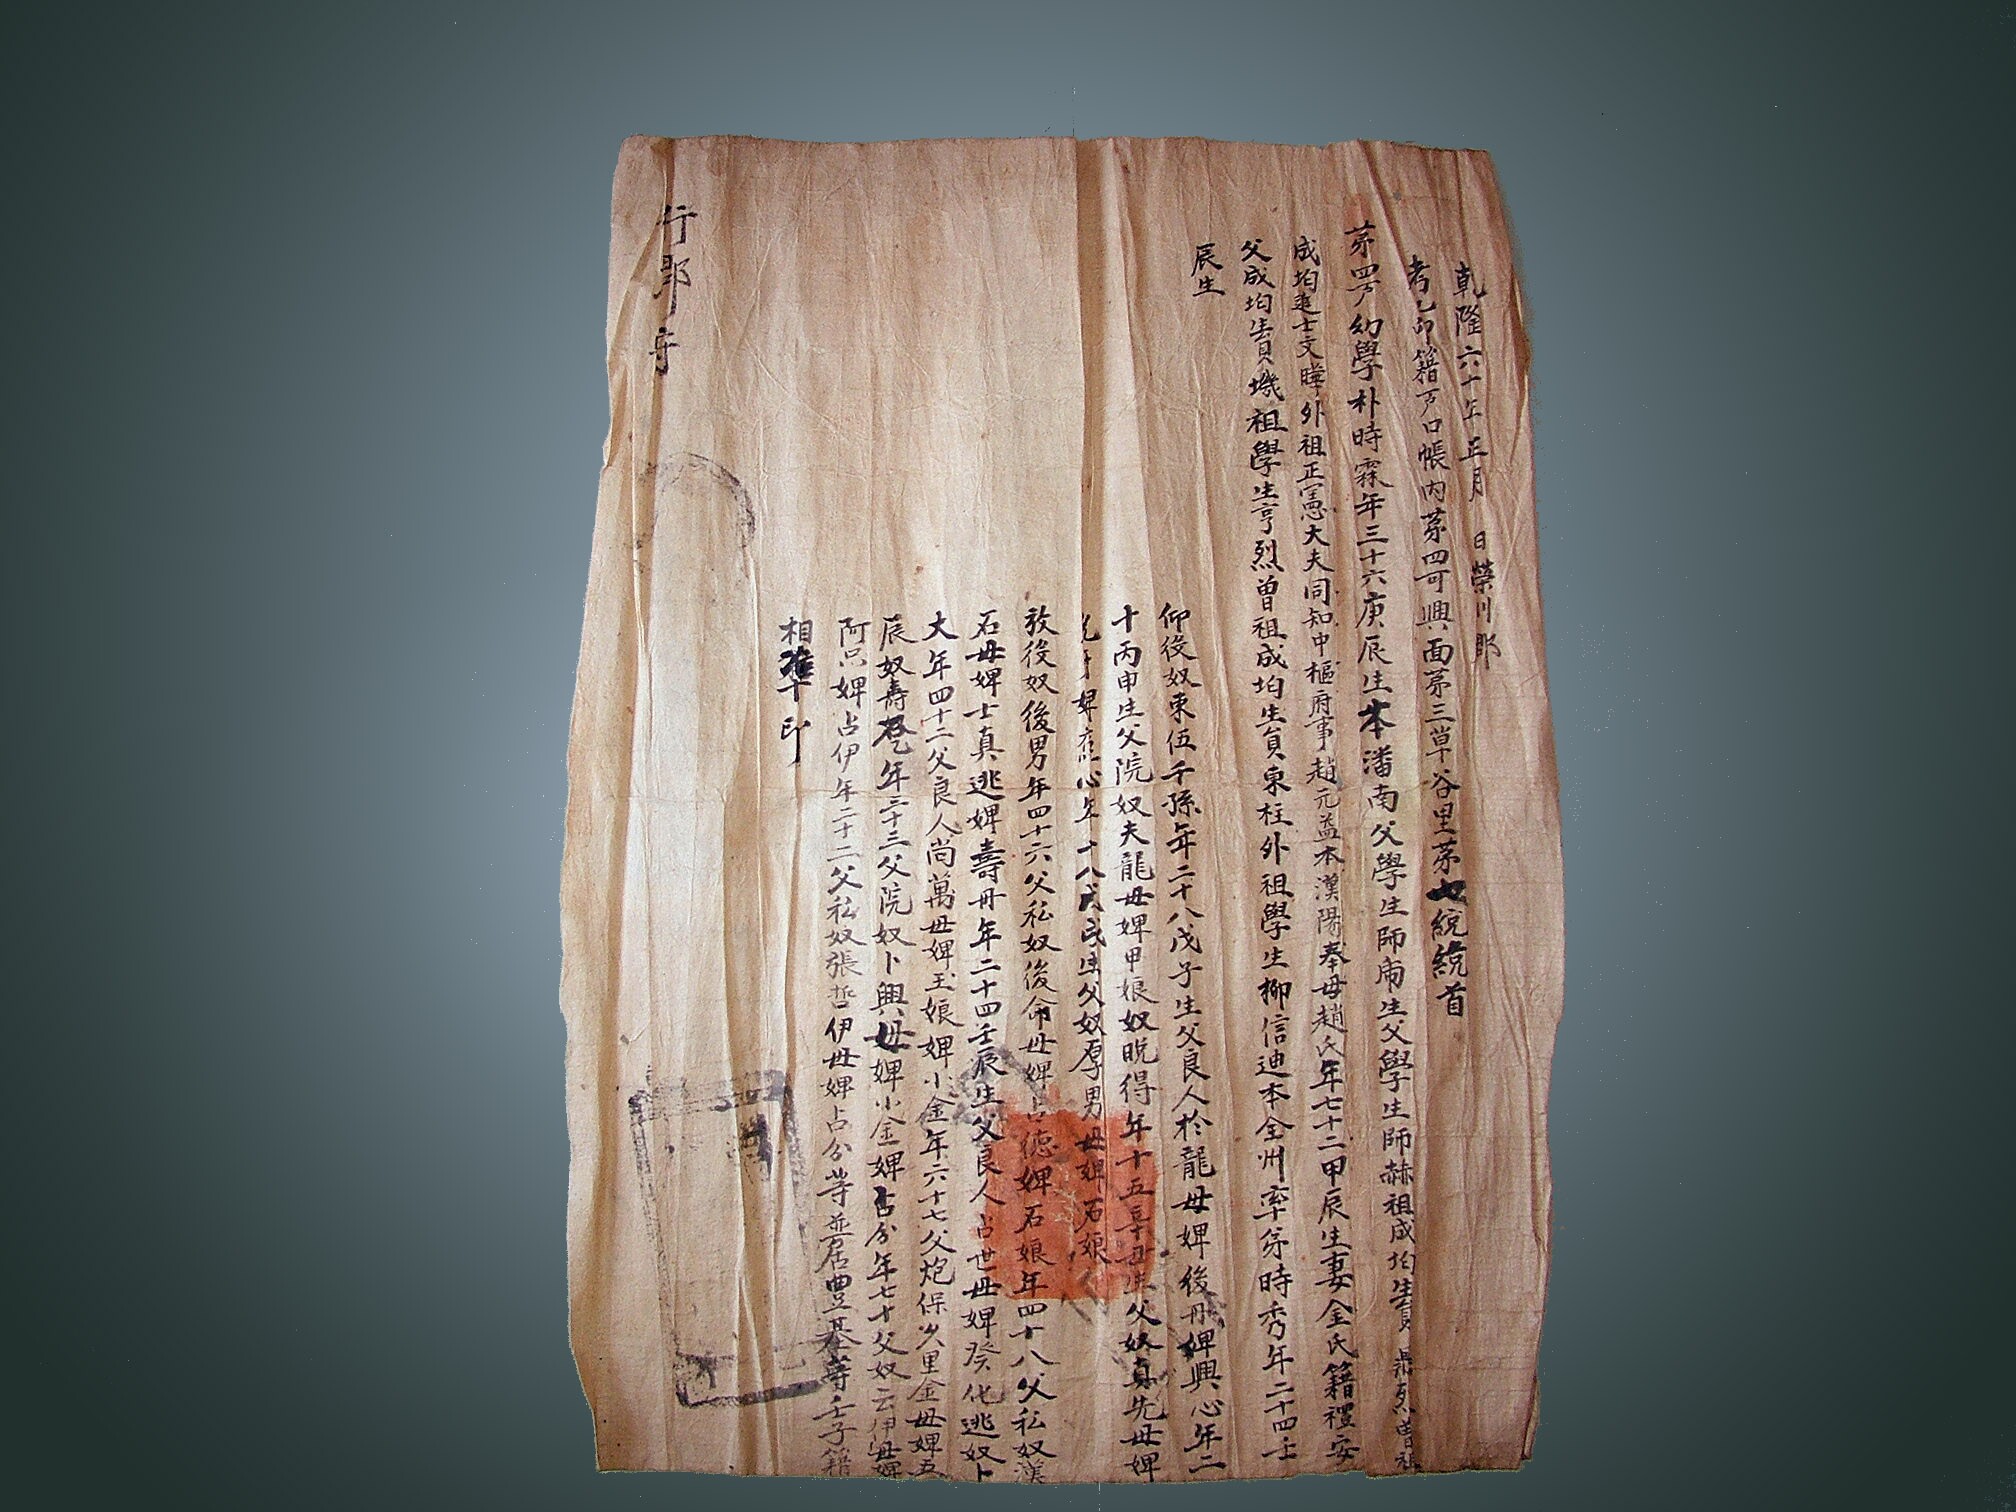 乾隆六十年正月 日榮川郡
考乙卯籍戶口帳內苐四可興面苐三草谷里苐七統統首
苐四戶幼學朴時霖年三十六庚辰生本潘南父學生師甪生父學生師赫祖成均生員鼎烈曾祖
成均進士文曄外祖正憲大夫同知中樞府事趙元益本漢陽奉母趙氏年七十二甲辰生妻金氏籍禮安
父成均生員璣祖學生亨烈曾祖成均生員東柱外祖學生柳信迪本全州率弟時秀年二十四壬
辰生
仰役奴東伍千孫年二十八戊子生父良人於龍母婢後丹婢興心年二
十丙申生父院奴夫龍母婢甲娘奴晩得年十五辛丑生父奴眞先母婢
婢應心年十八戊戌生父奴厚男母婢石娘
放役奴後男年四十六父私奴後命母婢占德婢石娘年四十八父私奴漢
石母婢士眞逃婢壽丹年二十四壬辰生父良人占世母婢癸化逃奴卜
大年四十二父良人尚萬母婢玉娘婢小金年六十七父炮保少里金母婢五
辰奴壽年三十三父院奴卜興母婢小金婢占分年七十父奴云伊母婢
阿只婢占伊年二十二父私奴張哲伊母婢占分等並居豊基等壬子籍
相準印
行郡守